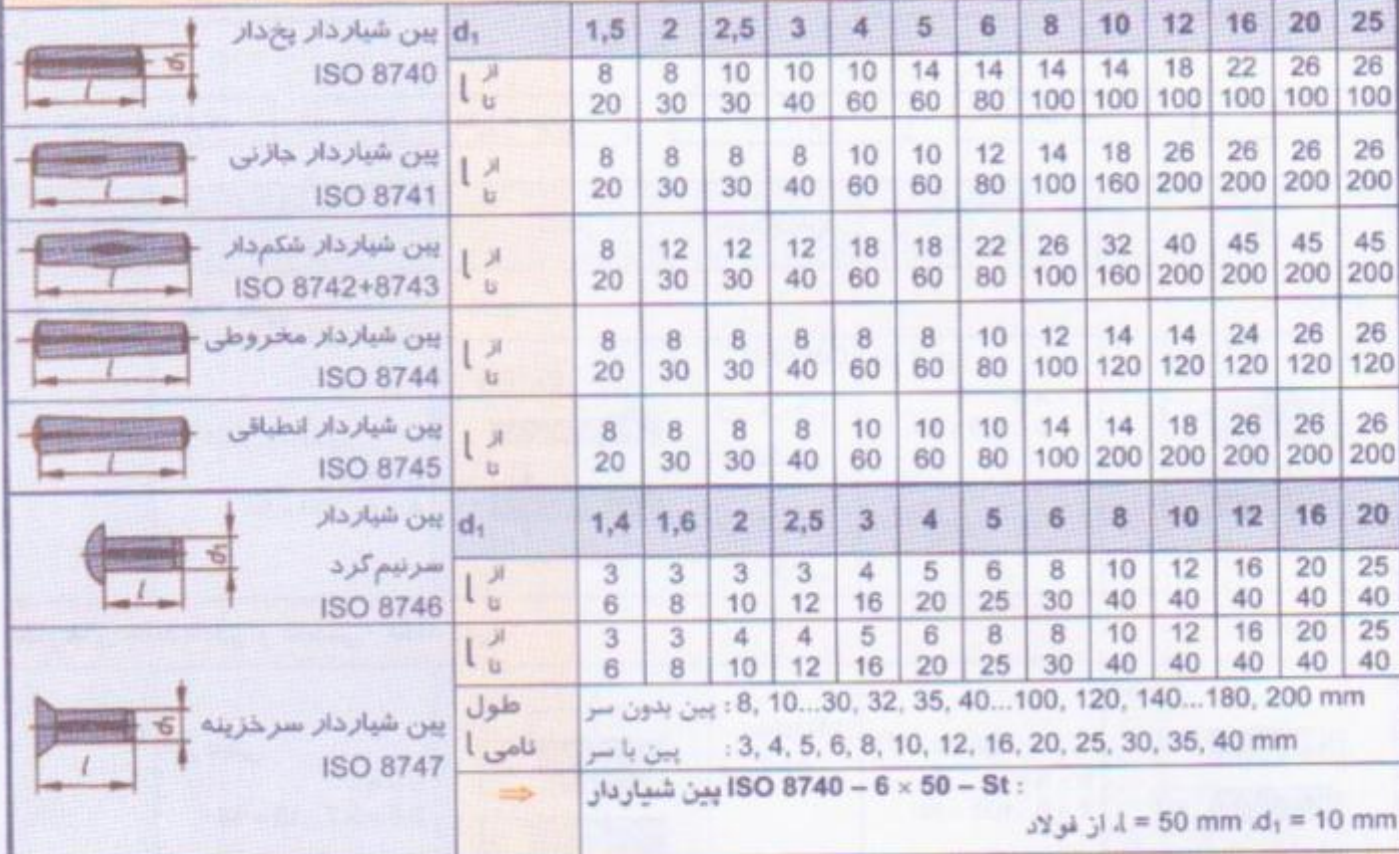 پین شیاردار پخ‌دار d₁ 1,5 2 2,5 3 4 5 6 8 10 12 16 20 25
ISO 8740
l از 8 8 10 10 10 14 14 14 14 18 22 26 26
تا 20 30 30 40 60 60 80 100 100 100 100 100 100
d₁
l
پین شیاردار جازنی
ISO 8741
l از 8 8 8 8 10 10 12 14 18 26 26 26 26
تا 20 30 30 40 60 60 80 100 160 200 200 200 200
l
پین شیاردار شکم‌دار
ISO 8742+8743
l از 8 12 12 12 18 18 22 26 32 40 45 45 45
تا 20 30 30 40 60 60 80 100 160 200 200 200 200
l
پین شیاردار مخروطی
ISO 8744
l از 8 8 8 8 8 8 10 12 14 14 24 26 26
تا 20 30 30 40 60 60 80 100 120 120 120 120 120
l
پین شیاردار انطباقی
ISO 8745
l از 8 8 8 8 10 10 10 14 14 18 26 26 26
تا 20 30 30 40 60 60 80 100 200 200 200 200 200
l
پین شیاردار d₁ 1,4 1,6 2 2,5 3 4 5 6 8 10 12 16 20
سرنیم‌گرد
ISO 8746
l از 3 3 3 3 4 5 6 8 10 12 16 20 25
تا 6 8 10 12 16 20 25 30 40 40 40 40 40
d₁
l
پین شیاردار سرخزینه
ISO 8747
l از 3 3 4 4 5 6 8 8 10 12 16 20 25
تا 6 8 10 12 16 20 25 30 40 40 40 40 40
d₁
l
طول
نامی l
پین بدون سر : 8, 10...30, 32, 35, 40...100, 120, 140...180, 200 mm
پین با سر : 3, 4, 5, 6, 8, 10, 12, 16, 20, 25, 30, 35, 40 mm
⇒ پین شیاردار ISO 8740 – 6 × 50 – St :
d₁ = 10 mm، l = 50 mm، از فولاد